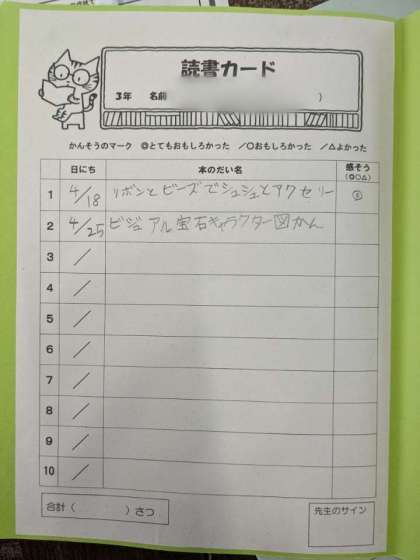 読書カード
3年 名前 )
かんそうのマーク ◎とてもおもしろかった /○おもしろかった /△よかった
日にち 本のだい名 感そう(◎○△)
1 4/18 リボンとビーズでシュシュとアクセリー ◎
2 4/25 ビジュアル宝石キャラクター図かん
3 /
4 /
5 /
6 /
7 /
8 /
9 /
10 /
合計( )さつ
先生のサイン